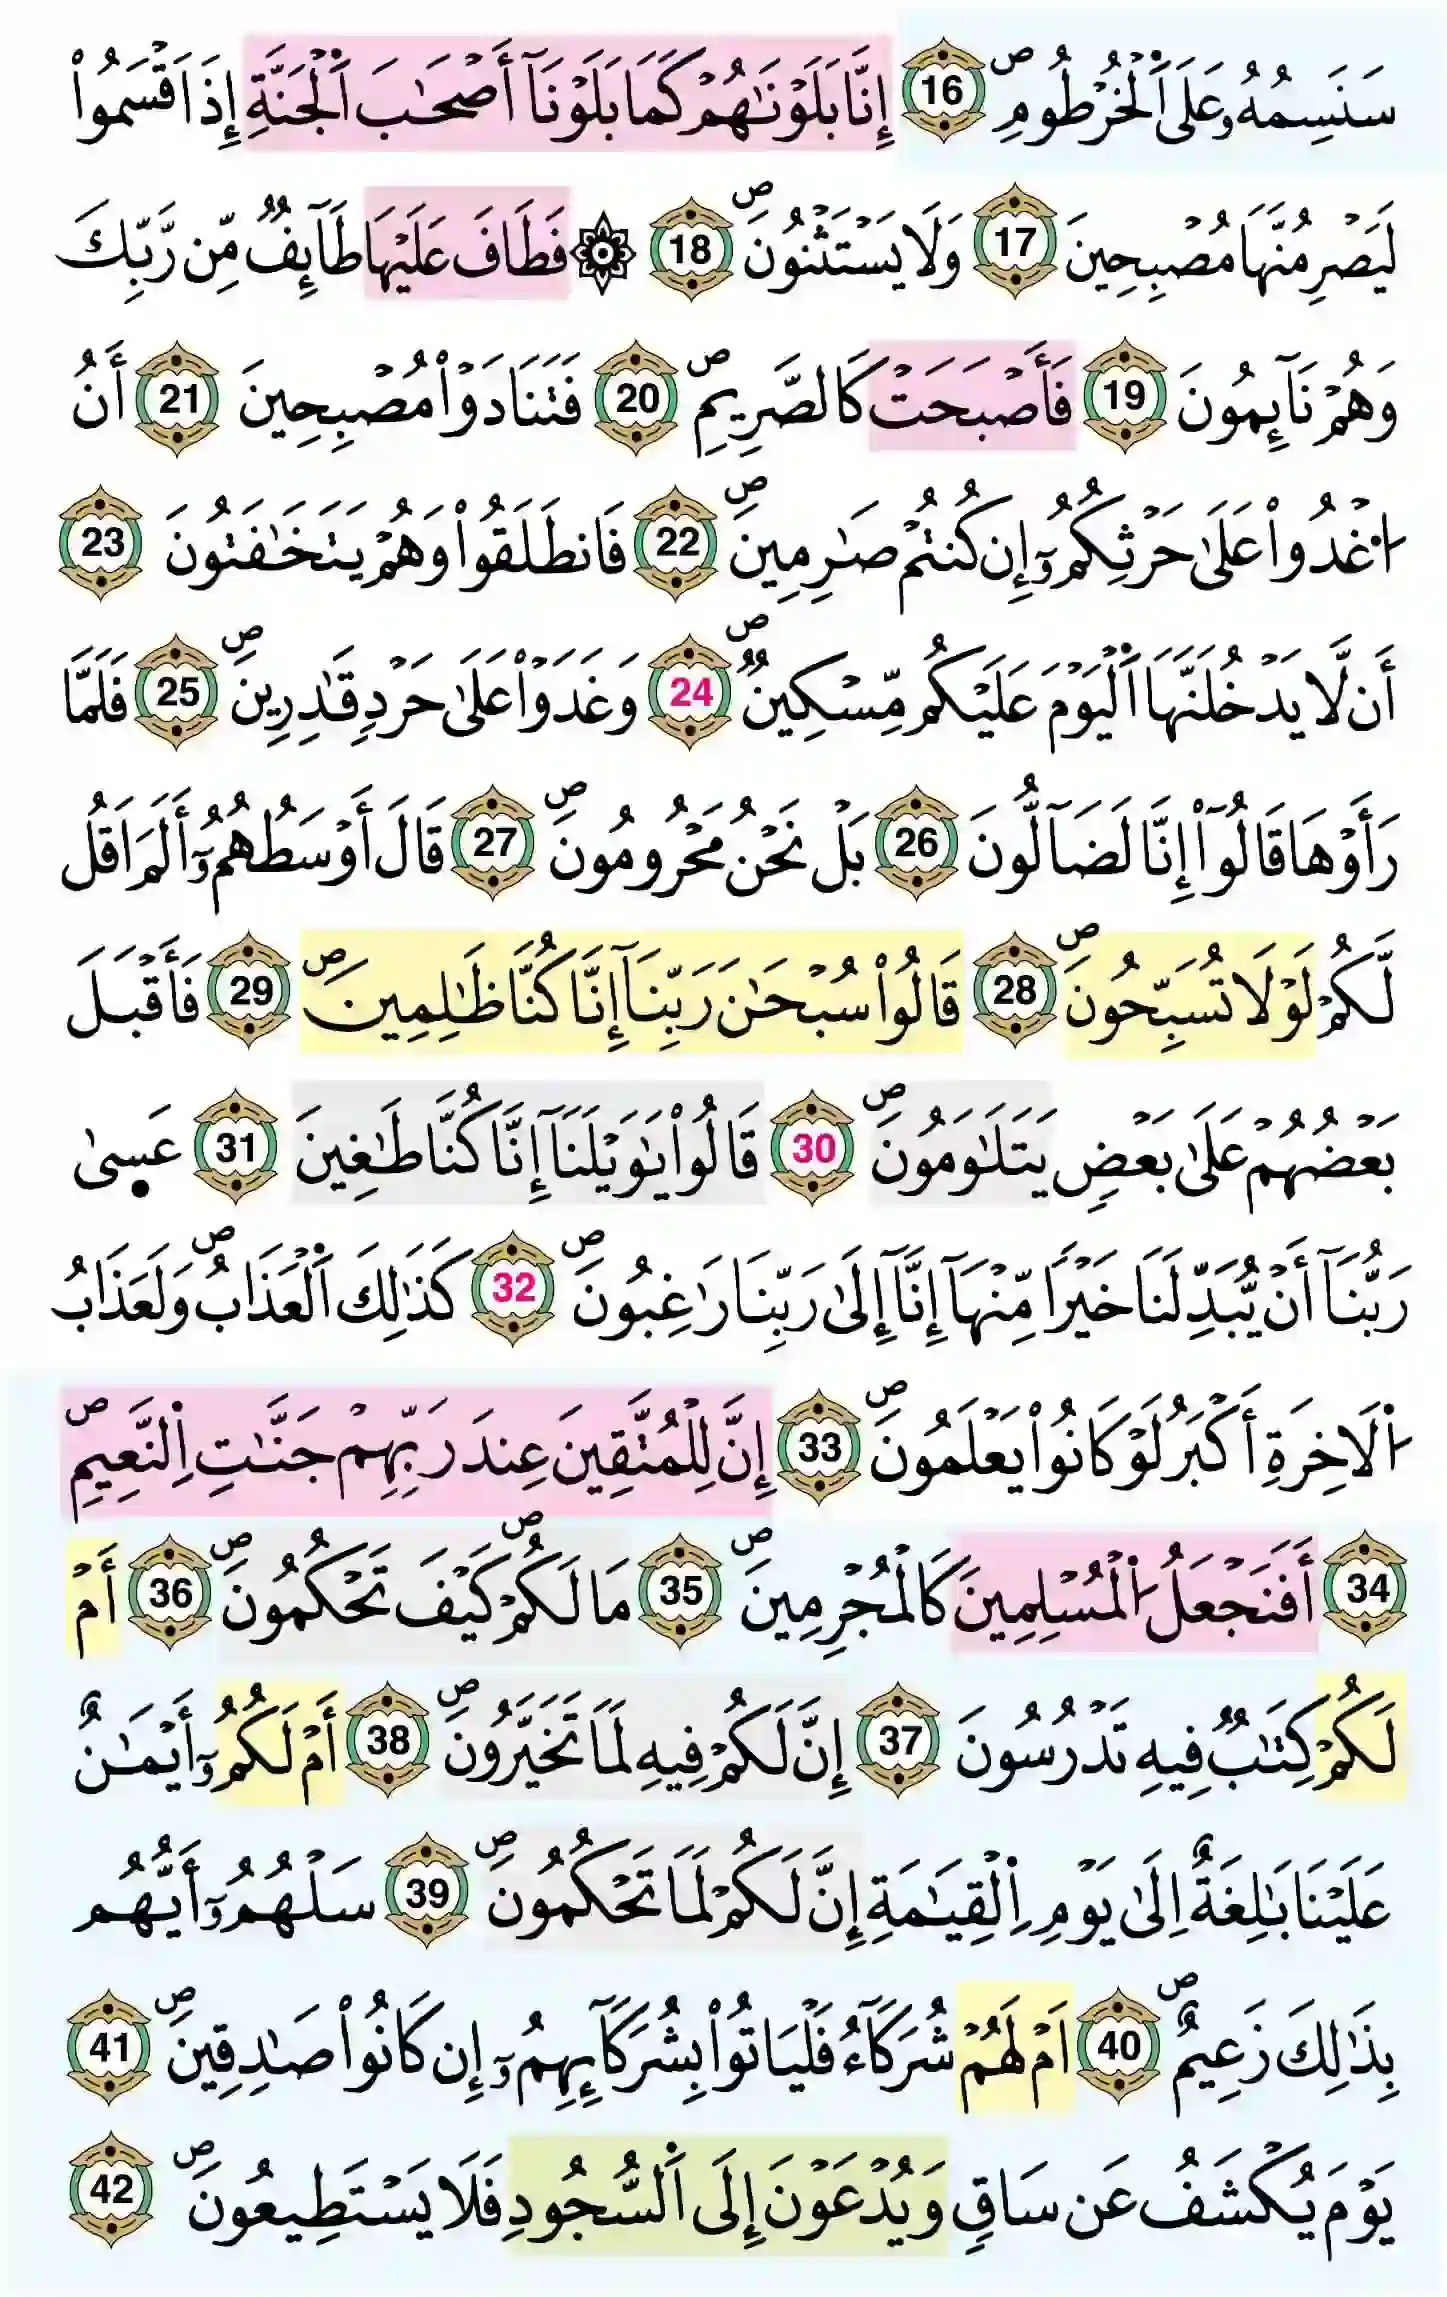 سَنَسِمُهُۥ عَلَى اَ۬لْخُرْطُومِۖ 16 إِنَّا بَلَوْنَٰهُمْ كَمَا بَلَوْنَآ أَصْحَٰبَ اَ۬لْجَنَّةِ إِذَ اَقْسَمُواْ
لَيَصْرِمُنَّهَا مُصْبِحِينَ 17 وَلَا يَسْتَثْنُونَۖ 18 ۞ فَطَافَ عَلَيْهَا طَآئِفٞ مِّن رَّبِّكَ
وَهُمْ نَآئِمُونَ 19 فَأَصْبَحَتْ كَالصَّرِيمِۖ 20 فَتَنَادَوْاْ مُصْبِحِينَ 21 أَنُ
اُ۟غْدُواْ عَلَىٰ حَرْثِكُمُۥٓ إِن كُنتُمْ صَٰرِمِينَۖ 22 فَانطَلَقُواْ وَهُمْ يَتَخَٰفَتُونَ 23
أَن لَّا يَدْخُلَنَّهَا اَ۬لْيَوْمَ عَلَيْكُم مِّسْكِينٞۖ 24 وَغَدَوْاْ عَلَىٰ حَرْدٖ قَٰدِرِينَۖ 25 فَلَمَّا
رَأَوْهَا قَالُوٓاْ إِنَّا لَضَآلُّونَ 26 بَلْ نَحْنُ مَحْرُومُونَۖ 27 قَالَ أَوْسَطُهُمُۥٓ أَلَمَ اَقُل
لَّكُمْ لَوْلَا تُسَبِّحُونَۖ 28 قَالُواْ سُبْحَٰنَ رَبِّنَآ إِنَّا كُنَّا ظَٰلِمِينَۖ 29 فَأَقْبَلَ
بَعْضُهُمْ عَلَىٰ بَعْضٖ يَتَلَٰوَمُونَۖ 30 قَالُواْ يَٰوَيْلَنَآ إِنَّا كُنَّا طَٰغِينَ 31 عَس۪ىٰ
رَبُّنَآ أَنْ يُّبَدِّلَنَا خَيْراٗ مِّنْهَآ إِنَّآ إِلَىٰ رَبِّنَا رَٰغِبُونَۖ 32 كَذَٰلِكَ اَ۬لْعَذَابُۖ وَلَعَذَابُ
اُ۬لَاخِرَةِ أَكْبَرُ لَوْ كَانُواْ يَعْلَمُونَۖ 33 إِنَّ لِلْمُتَّقِينَ عِندَ رَبِّهِمْ جَنَّٰتِ اِ۬لنَّعِيمِۖ
34 أَفَنَجْعَلُ اُ۬لْمُسْلِمِينَ كَالْمُجْرِمِينَۖ 35 مَا لَكُمْۖ كَيْفَ تَحْكُمُونَۖ 36 أَمْ
لَكُمْ كِتَٰبٞ فِيهِ تَدْرُسُونَ 37 إِنَّ لَكُمْ فِيهِ لَمَا تَخَيَّرُونَۖ 38 أَمْ لَكُمُۥٓ أَيْمَٰنٌ
عَلَيْنَا بَٰلِغَةٌ اِلَىٰ يَوْمِ اِ۬لْقِيَٰمَةِ إِنَّ لَكُمْ لَمَا تَحْكُمُونَۖ 39 سَلْهُمُۥٓ أَيُّهُم
بِذَٰلِكَ زَعِيمٌۖ 40 اَمْ لَهُمْ شُرَكَآءُ فَلْيَاتُواْ بِشُرَكَآئِهِمُۥٓ إِن كَانُواْ صَٰدِقِينَۖ 41
يَوْمَ يُكْشَفُ عَن سَاقٖ وَيُدْعَوْنَ إِلَى اَ۬لسُّجُودِ فَلَا يَسْتَطِيعُونَۖ 42